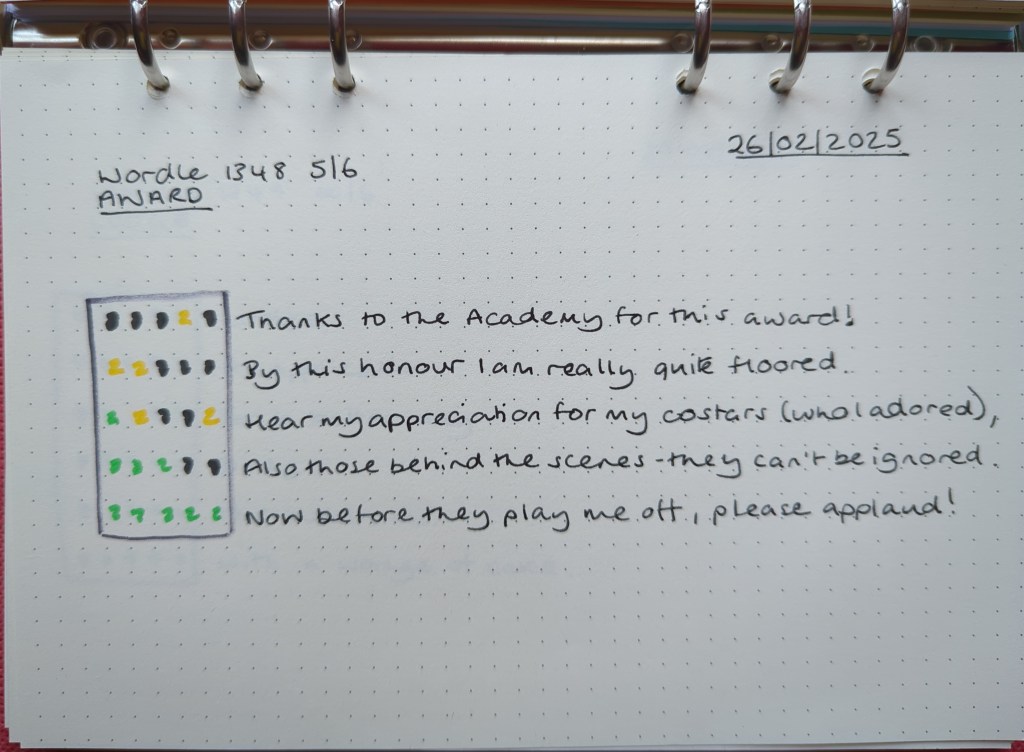 26/02/2025
Wordle 1348 5/6
AWARD
Thanks to the Academy for this award!
By this honour I am really quite floored.
Hear my appreciation for my costars (who I adored),
Also those behind the scenes - they can't be ignored.
Now before they play me off, please applaud!